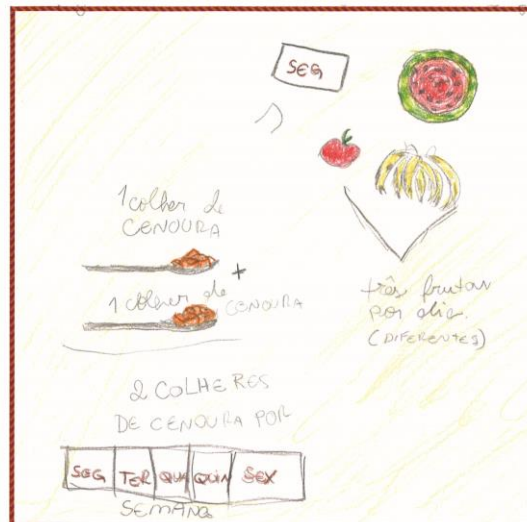 SEG
1 colher de
CENOURA
+
1 colher de CENOURA
três frutas
por dia.
(DIFERENTES)
2 COLHERES
DE CENOURA POR
SEG TER QUA QUIN SEX
SEMANA